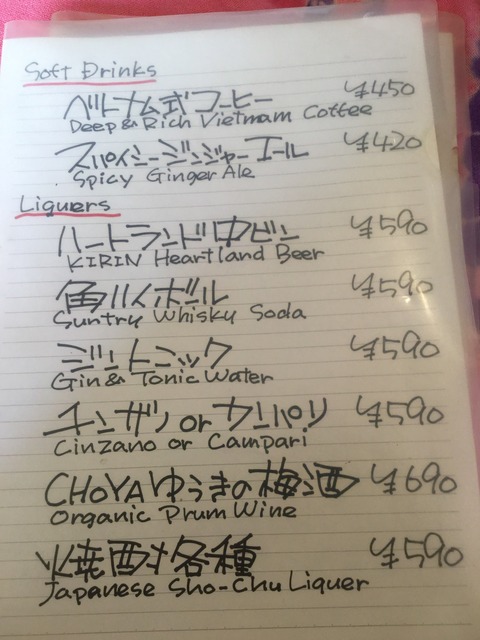 Soft Drinks
ベトナム式コーヒー ¥450
Deep & Rich Vietnam Coffee
スパイシージンジャーエール ¥420
Spicy Ginger Ale
Liquers
ハートランド中ビン ¥590
KIRIN Heartland Beer
角ハイボール ¥590
Suntry Whisky Soda
ジントニック ¥590
Gin & Tonic Water
チンザノ or カンパリ ¥590
Cinzano or Campari
CHOYAゆうきの梅酒 ¥690
Organic Prum Wine
焼酎各種 ¥590
Japanese Sho-Chu Liquer